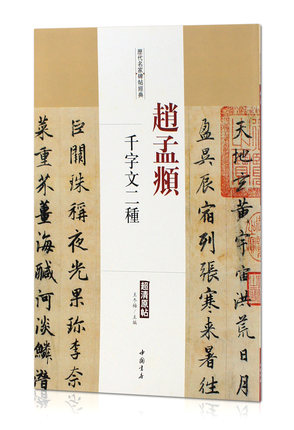 天地玄黃宇宙洪荒日月
盈昃辰宿列張寒來暑往
歷代名家碑帖經典
趙孟頫
千字文二種
超清原帖
王冬梅 主編
中國書店
巨闕珠稱夜光果珍李柰
菜重芥薑海鹹河淡鱗潛